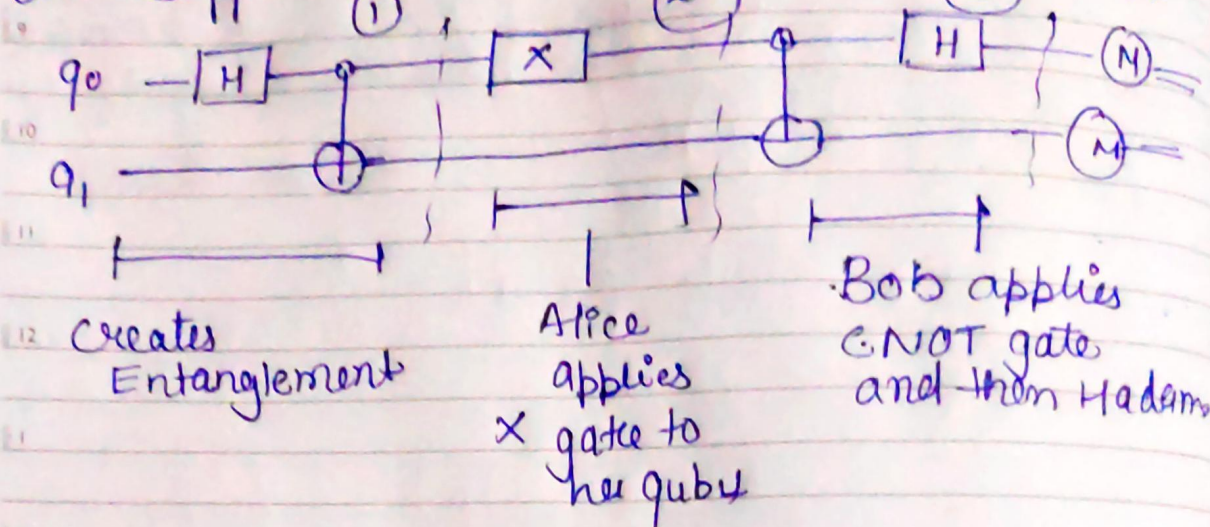 9
1
q0 H X H M
10
q1 M
11
12
Creates
Entanglement
Alice
applies
X gate to
her
Bob applies
CNOT gate
and then Hadam
1